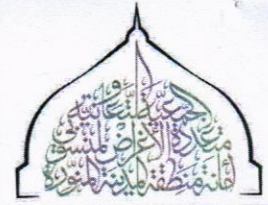 الجمعية التعاونية
متعددة الأغراض لمنسوبي
أمانة منطقة المدينة المنورة